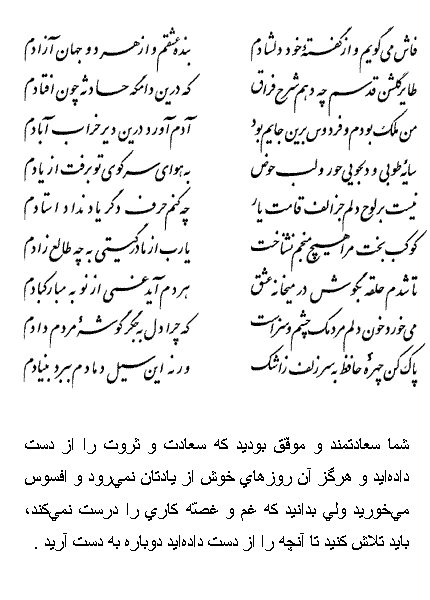 فاش می‌گویم و از گفتهٔ خود دلشادم بندهٔ عشقم و از هر دو جهان آزادم
طایر گلشن قدسم چه دهم شرح فراق که درین دامگه حادثه چون افتادم
من ملک بودم و فردوس برین جایم بود آدم آورد درین دیر خراب آبادم
سایهٔ طوبی و دلجویی حور و لب حوض به هوای سر کوی تو برفت از یادم
نیست بر لوح دلم جز الف قامت یار چه کنم حرف دگر یاد نداد استادم
کوکب بخت مرا هیچ منجم نشناخت یارب از مادر گیتی به چه طالع زادم
تا شدم حلقه بگوش در میخانهٔ عشق هر دم آید غمی از نو به مبارکبادم
می‌خورد خون دلم مردمک چشم و سزاست که چرا دل به جگر گوشهٔ مردم دادم
پاک کن چهرهٔ حافظ به سر زلف ز اشک ورنه این سیل دمادم ببرد بنیادم
شما سعادتمند و موفق بودید که سعادت و ثروت را از دست
داده‌اید و هرگز آن روزهاي خوش از يادتان نمي‌رود و افسوس
مي‌خوريد ولي بدانيد که غم و غصّه کاري را درست نمي‌کند،
بايد تلاش کنيد تا آنچه را از دست داده‌ايد دوباره به دست آريد .